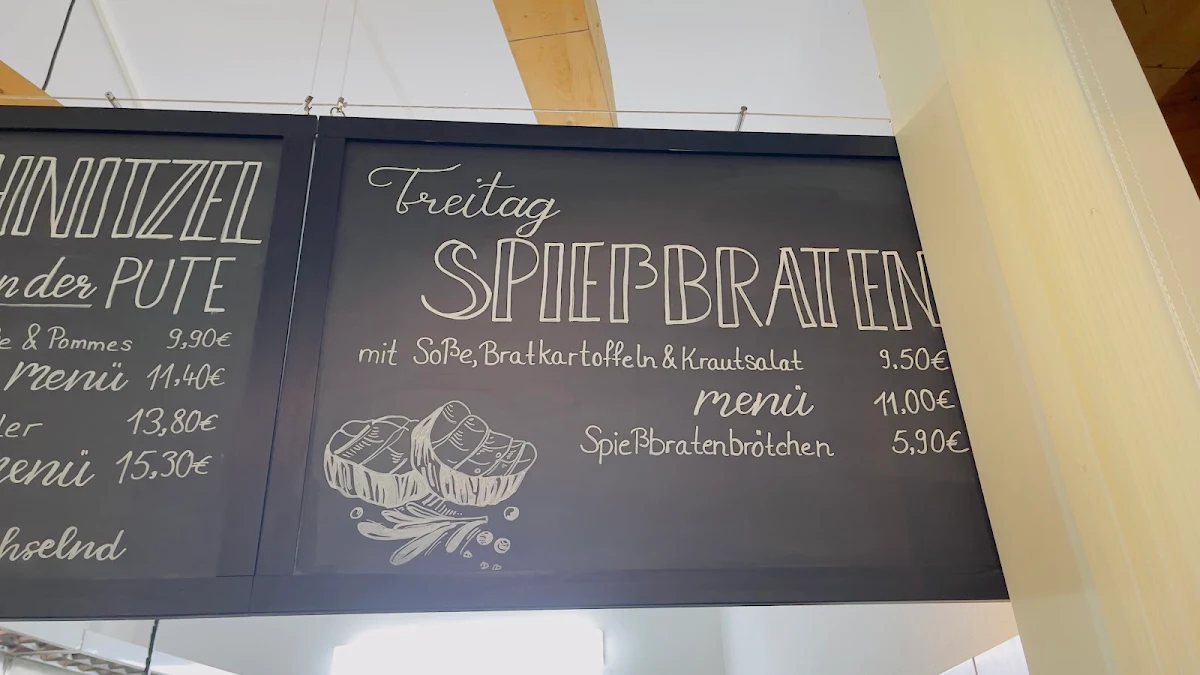 PUTE
& Pommes 9,90€
menü 11,40€
13,80€
15,30€
Freitag
SPIEßBRATEN
mit Soße, Bratkartoffeln & Krautsalat 9.50€
menü 11.00€
Spießbratenbrötchen 5,90€